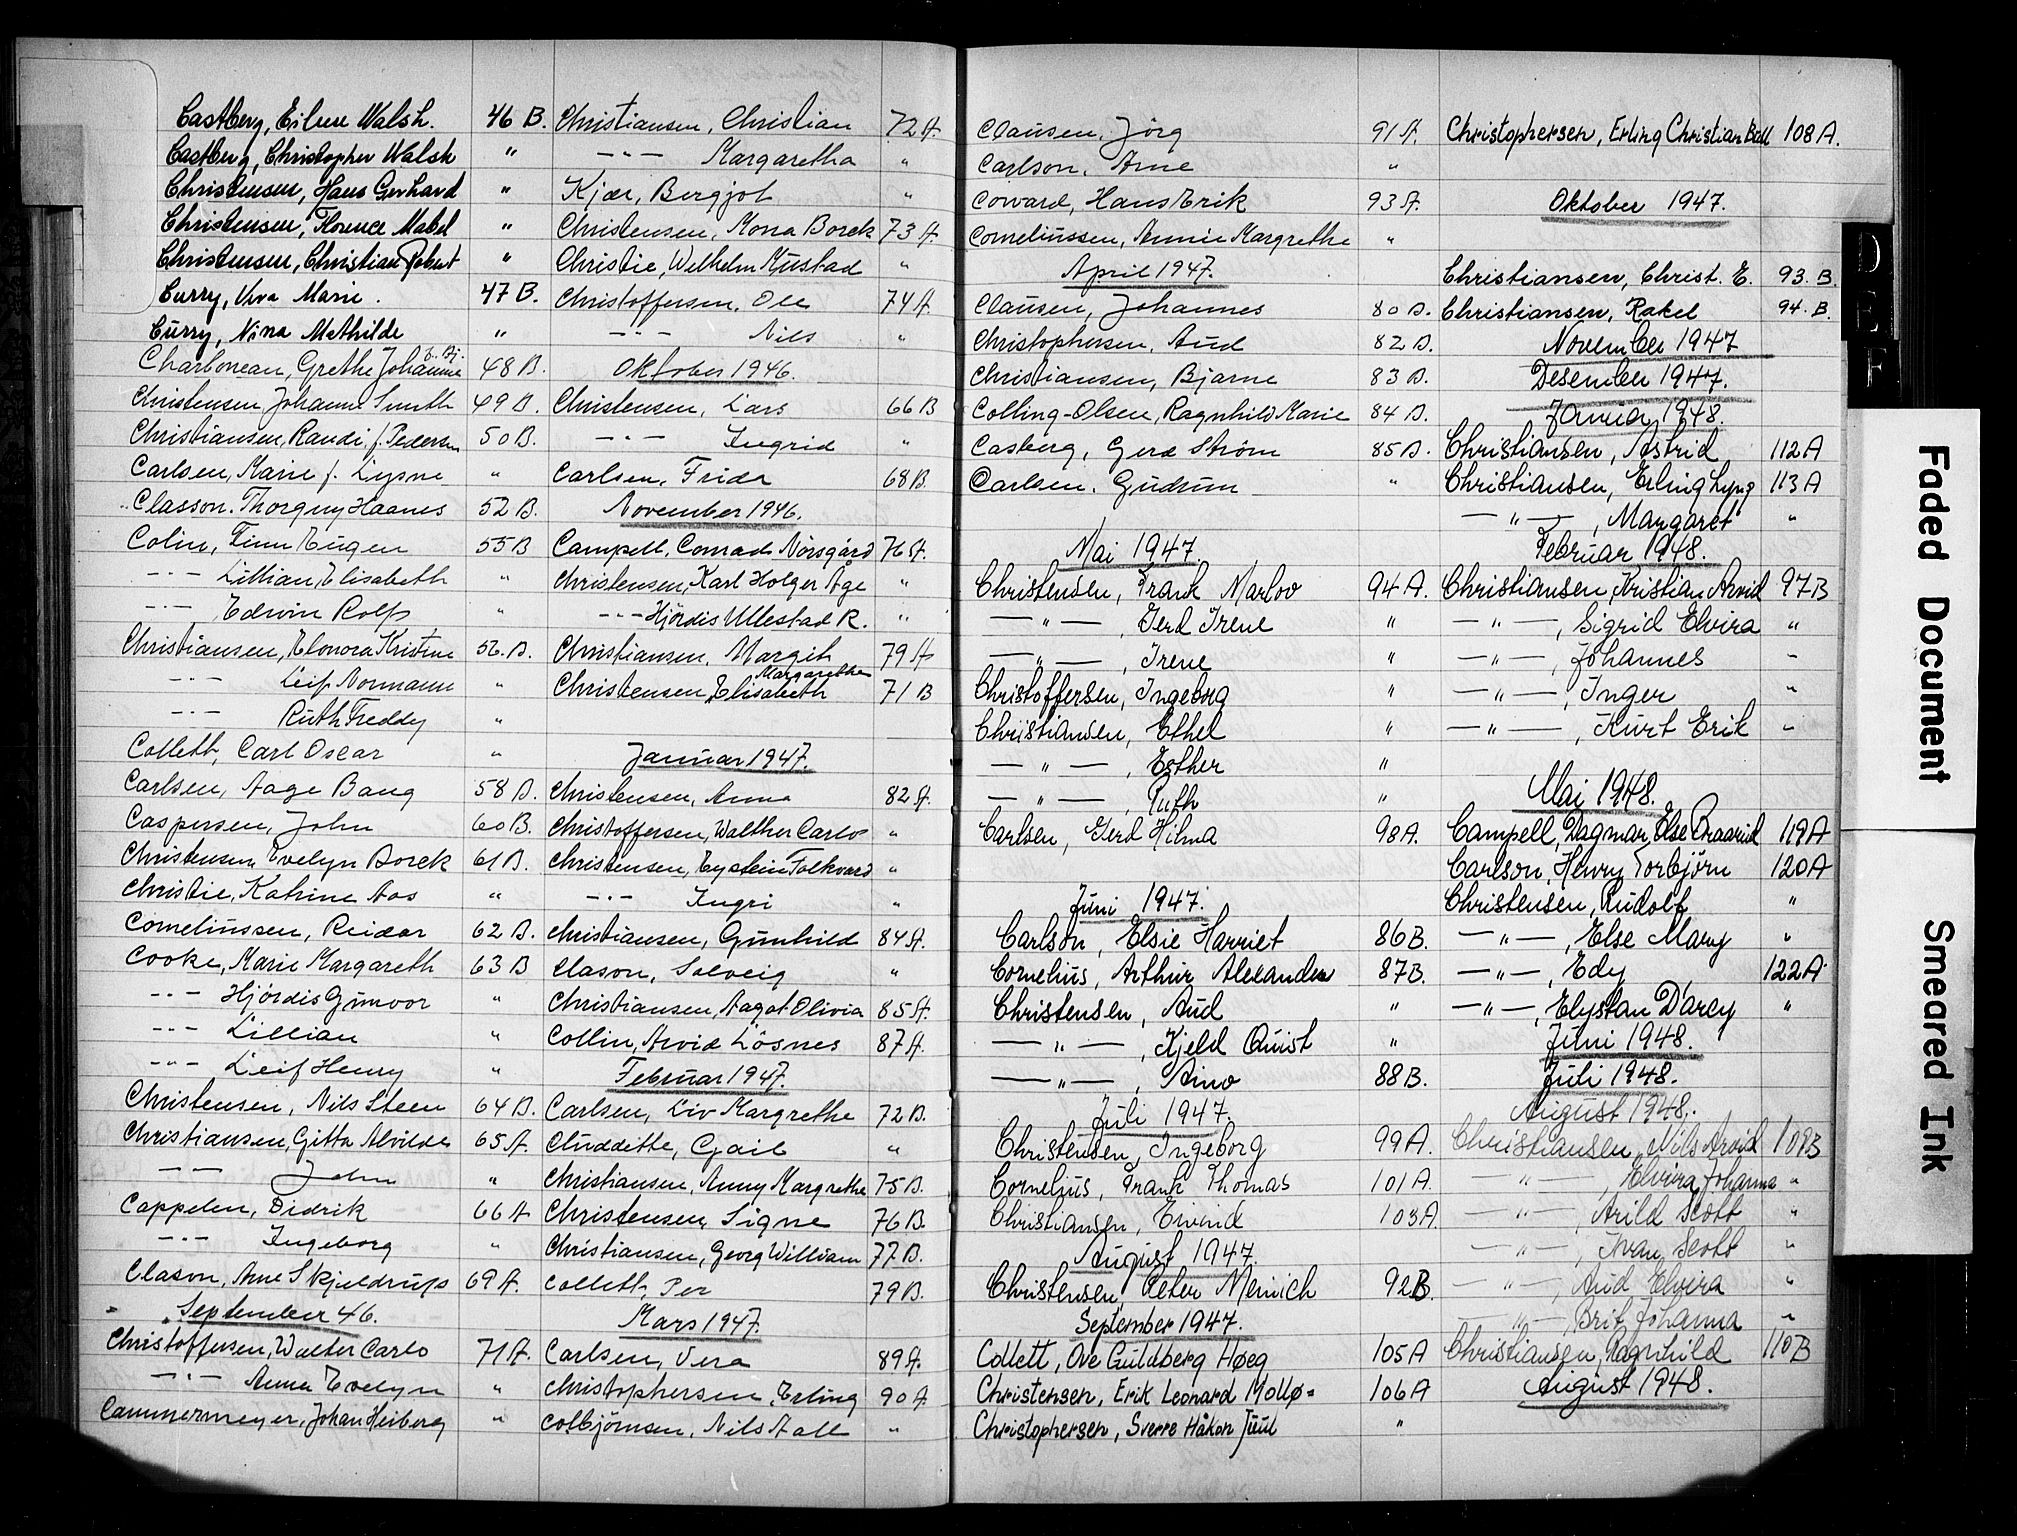 Castberg, Eileen Walsh. 46 B.
Castberg, Christopher Walsh "
Christensen, Hans Gerhard "
Christensen, Florence Mabel "
Christensen, Christian Robert "
Curry, Viva Marie. 47 B.
Curry, Nina Mathilde "
Charboneau, Grethe Johanne 48 B.
Christensen Johanne Smith 49 B.
Christiansen, Randi f. Pedersen 50 B.
Carlsen, Marie f. Lysne "
Classon. Thorguny Haanes 52 B.
Colin, Finn Eugen 55 B
-"- Lillian, Elisabeth "
-"- Edwin Rolf "
Christiansen, Elonora Kristine 56. B.
-"- Leif Normann "
-"- Ruth Freddy "
Collett, Carl Oscar "
Carlsen, Aage Bang 58 B.
Caspersen, John 60 B.
Christensen, Evelyn Borck 61 B.
Christie, Katrine Aas "
Corneliussen, Reidar 62 B.
Cooke, Marie Margareth 63 B
-"- Hjördis Gunvor "
-"- Lillian "
-"- Leif Henry "
Christensen, Nils Steen 64 B.
Christiansen, Gitta Alvilde 65 A.
-"- John "
Cappelen, Didrik 66 A
-"- Ingeborg "
Clason, Arne Skjeldrup 69 A.
September 46.
Christoffersen, Walter Carlo 71 A.
-"- Anna Evelyn "
Cammermeyer, Johan Heiberg "
Christiansen, Christian 72 A
-"- Margaretha "
Kjær, Bergjot "
Christensen, Mona Borck 73 A.
Christie, Wilhelm Mustad "
Christoffersen, Ole 74 A
-"- Nils "
Oktober 1946.
Christensen, Lars 66 B
-"- Ingrid "
Carlsen, Frida 68 B.
November 1946.
Campell, Conrad Nörsgård 76 A.
Christensen, Karl Holger Åge "
-"- Hjördis Ullestad R. "
Christiansen, Margit 79 A
Margarethe
Christensen, Elisabeth 71 B
Januar 1947.
Christensen, Anna 82 A.
Christoffersen, Walther Carlo "
Christensen, Eystein Folkvard "
-"- Ingri "
Christiansen, Gunhild 84 A.
Clason, Solveig "
Christiansen, Aagot Olivia 85 A.
Collin, Arvid Lösnes 87 A.
Februar 1947.
Carlsen, Liv Margrethe 72 B.
Cluddette, Gail "
Christiansen, Anny Margrethe 75 B.
Christensen, Signe 76 B.
Christiansen, Georg William 77 B.
Collett, Per 79 B.
Mars 1947.
Carlsen, Vera 89 A.
Christophersen, Erling 90 A
Colbjørnsen, Nils Aall "
Clausen, Jörg 91 A.
Carlson, Arne "
Coward, Hans Erik 93 A.
Corneliussen, Annie Margrethe "
April 1947.
Clausen, Johannes 80 B.
Christophersen, Aud 82 B.
Christiansen, Bjarne 83 B.
Colling-Olsen, Ragnhild Marie 84 B.
Casberg, Gerd Strøm 85 B.
Carlsen, Gudrun "
Mai 1947.
Christensen, Frank Marlov 94 A.
— " —, Gerd Irene "
— " —, Irene "
Christoffersen, Ingeborg "
Christiansen, Ethel "
— " —, Esther "
— " —, Ruth "
Carlsen, Gerd Hilma 98 A.
Juni 1947.
Carlson, Elsie Harriet 86 B.
Cornelius, Arthur Alexander 87 B.
Christensen, Aud "
— " —, Kjeld Quist "
— " —, Aino 88 B.
Juli 1947.
Christensen, Ingeborg 99 A.
Cornelius, Frank Thomas 101 A.
Christiansen, Eivind 103 A
August 1947.
Christensen, Peter Meinich 92 B.
September 1947.
Collett, Ove Guldberg Høeg 105 A
Christensen, Erik Leonard Mollø= 106 A
Christophersen, Sverre Håkon Juul "
Christophersen, Erling Christian Ball 108 A.
Oktober 1947.
Christiansen, Christ. E. 93. B
Christiansen, Rakel 94. B.
November 1947
Desember 1947.
Januar 1948.
Christiansen, Astrid 112 A
Christiansen, Erling Lyng 113 A
— " —, Margaret "
Februar 1948.
Christiansen, Kristian Arvid 97 B
— " —, Sigrid Elvira "
— " —, Johannes "
— " —, Inger "
— " —, Kurt Erik "
Mai 1948.
Campell, Dagmar, Else Braarud 119 A
Carlson, Henry Torbjörn 120 A
Christensen, Rudolf "
— " —, Else Mary "
— " —, Edy 122 A
— " —, Elystan D'arcy "
Juni 1948.
Juli 1948.
August 1948.
Christiansen, Nils Arvid 109 B
— " —, Elvira Johanna "
— " —, Arild Scott "
— " —, Ivan Scott "
— " —, Aud Elvira "
— " —, Brit Johanna "
Christiansen, Ragnhild 110 B
August 1948.
D
E
F
Faded Document
Smeared Ink